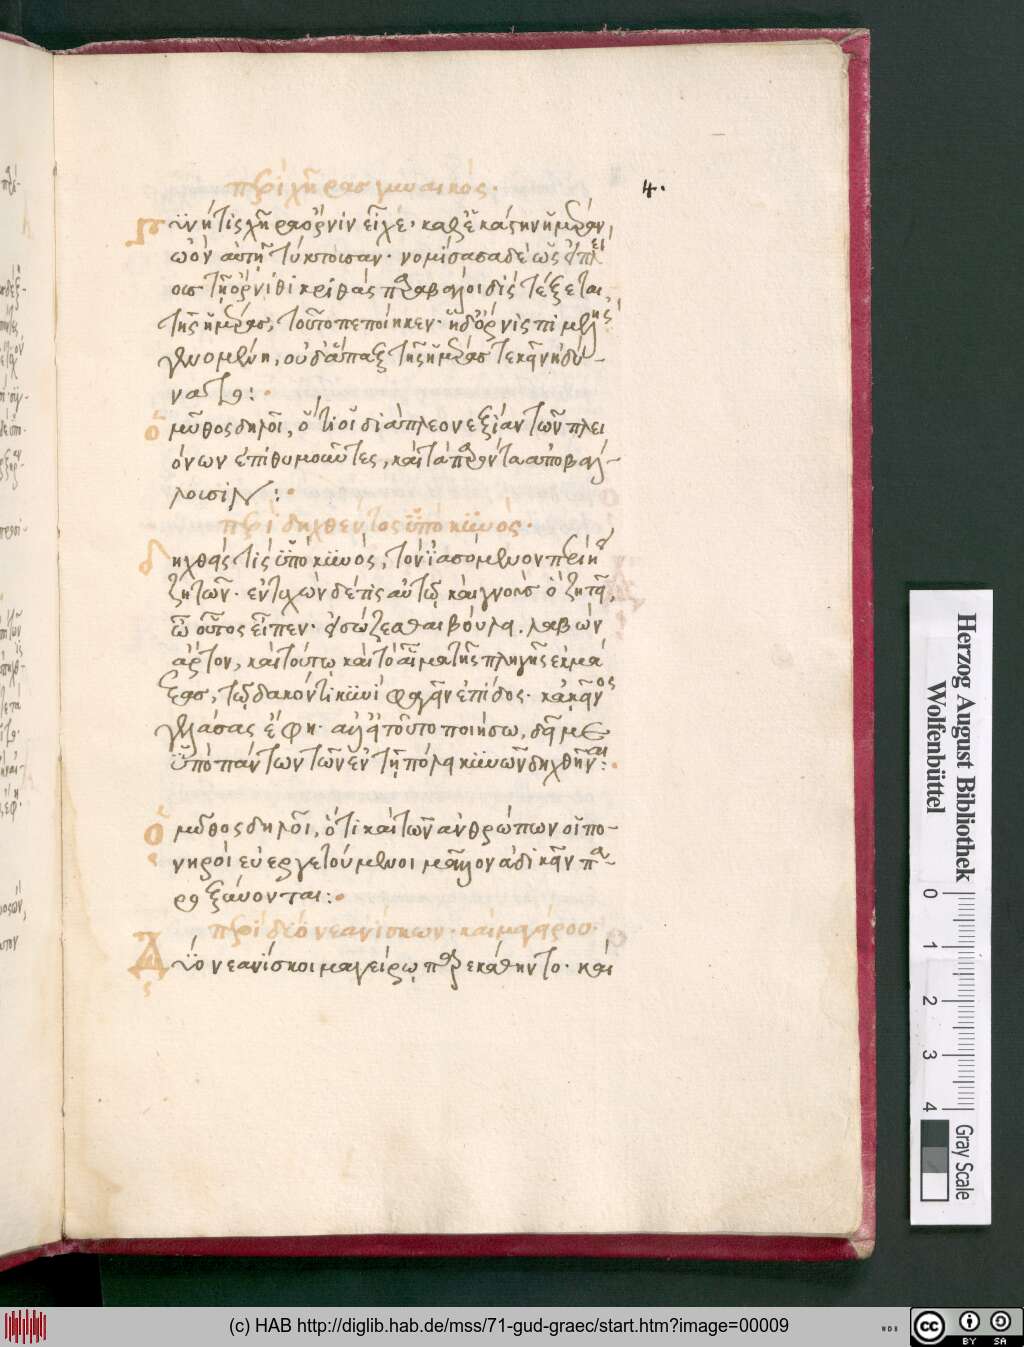 περὶ χήρας γυναικός.
4.
Γυνή τις χήρα ὄρνιν εἶχε· καθ' ἑκάστην ἡμέραν,
ὠὸν αὐτῇ τίκτουσαν. νομίσασα δὲ ὡς εἰ πλεί
ους τῇ ὄρνιθι κριθὰς παραβάλοι δὶς τέξεται
τῆς ἡμέρας, τοῦτο πεποίηκεν. ἡ δ' ὄρνις πιμελὴς
γενομένη, οὐδ' ἅπαξ τῆς ἡμέρας τεκεῖν ἠδύ-
νατο:
ὁ μῦθος δηλοῖ, ὅτι οἱ διὰ πλεονεξίαν τῶν πλει
όνων ἐπιθυμοῦντες, καὶ τὰ παρόντα ἀποβάλ-
λουσιν:
περὶ δηχθέντος ὑπὸ κυνός.
δηχθείς τις ὑπὸ κυνός, τὸν ἰασόμενον περιῄει
ζητῶν. ἐντυχὼν δέ τις αὐτῷ καὶ γνοὺς ὃ ζητεῖ,
ὦ οὗτος εἶπεν. εἰ σώζεσθαι βούλει. λαβὼν
ἄρτον, καὶ τούτῳ καὶ τὸ αἷμα τῆς πληγῆς ἐκμά
ξας, τῷ δακόντι κυνὶ φαγεῖν ἐπίδος. κἀκεῖνος
γελάσας ἔφη. ἀλλ' εἰ τοῦτο ποιήσω, δεῖ με
ὑπὸ πάντων τῶν ἐν τῇ πόλει κυνῶν δηχθῆναι:
ὁ μῦθος δηλοῖ, ὅτι καὶ τῶν ἀνθρώπων οἱ πο-
νηροὶ εὐεργετούμενοι μᾶλλον ἀδικεῖν πα-
ροξύνονται:
περὶ δύο νεανίσκων. καὶ μαγείρου.
Δύο νεανίσκοι μαγείρῳ παρεκάθηντο. καὶ
Herzog August Bibliothek
Wolfenbüttel
0 1 2 3 4
Gray Scale
(c) HAB http://diglib.hab.de/mss/71-gud-graec/start.htm?image=00009
WDB
CC BY SA